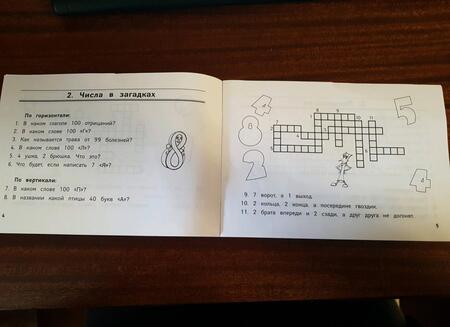 2. Числа в загадках
По горизонтали:
1. В каком глаголе 100 отрицаний?
2. В каком слове 100 «Г»?
3. Как называется трава от 99 болезней?
4. В каком слове 100 «Л»?
5. 4 ушка, 2 брюшка. Что это?
6. Что будет, если написать 7 «Я»?
По вертикали:
7. В каком слове 100 «П»?
8. В названии какой птицы 40 букв «А»?
4
4
8
2
5
4
8 9
7 1 10 11
2
3 5
4 6
9. 7 ворот, а 1 выход.
10. 2 кольца, 2 конца, а посередине гвоздик.
11. 2 брата впереди и 2 сзади, а друг друга не догонят.
5